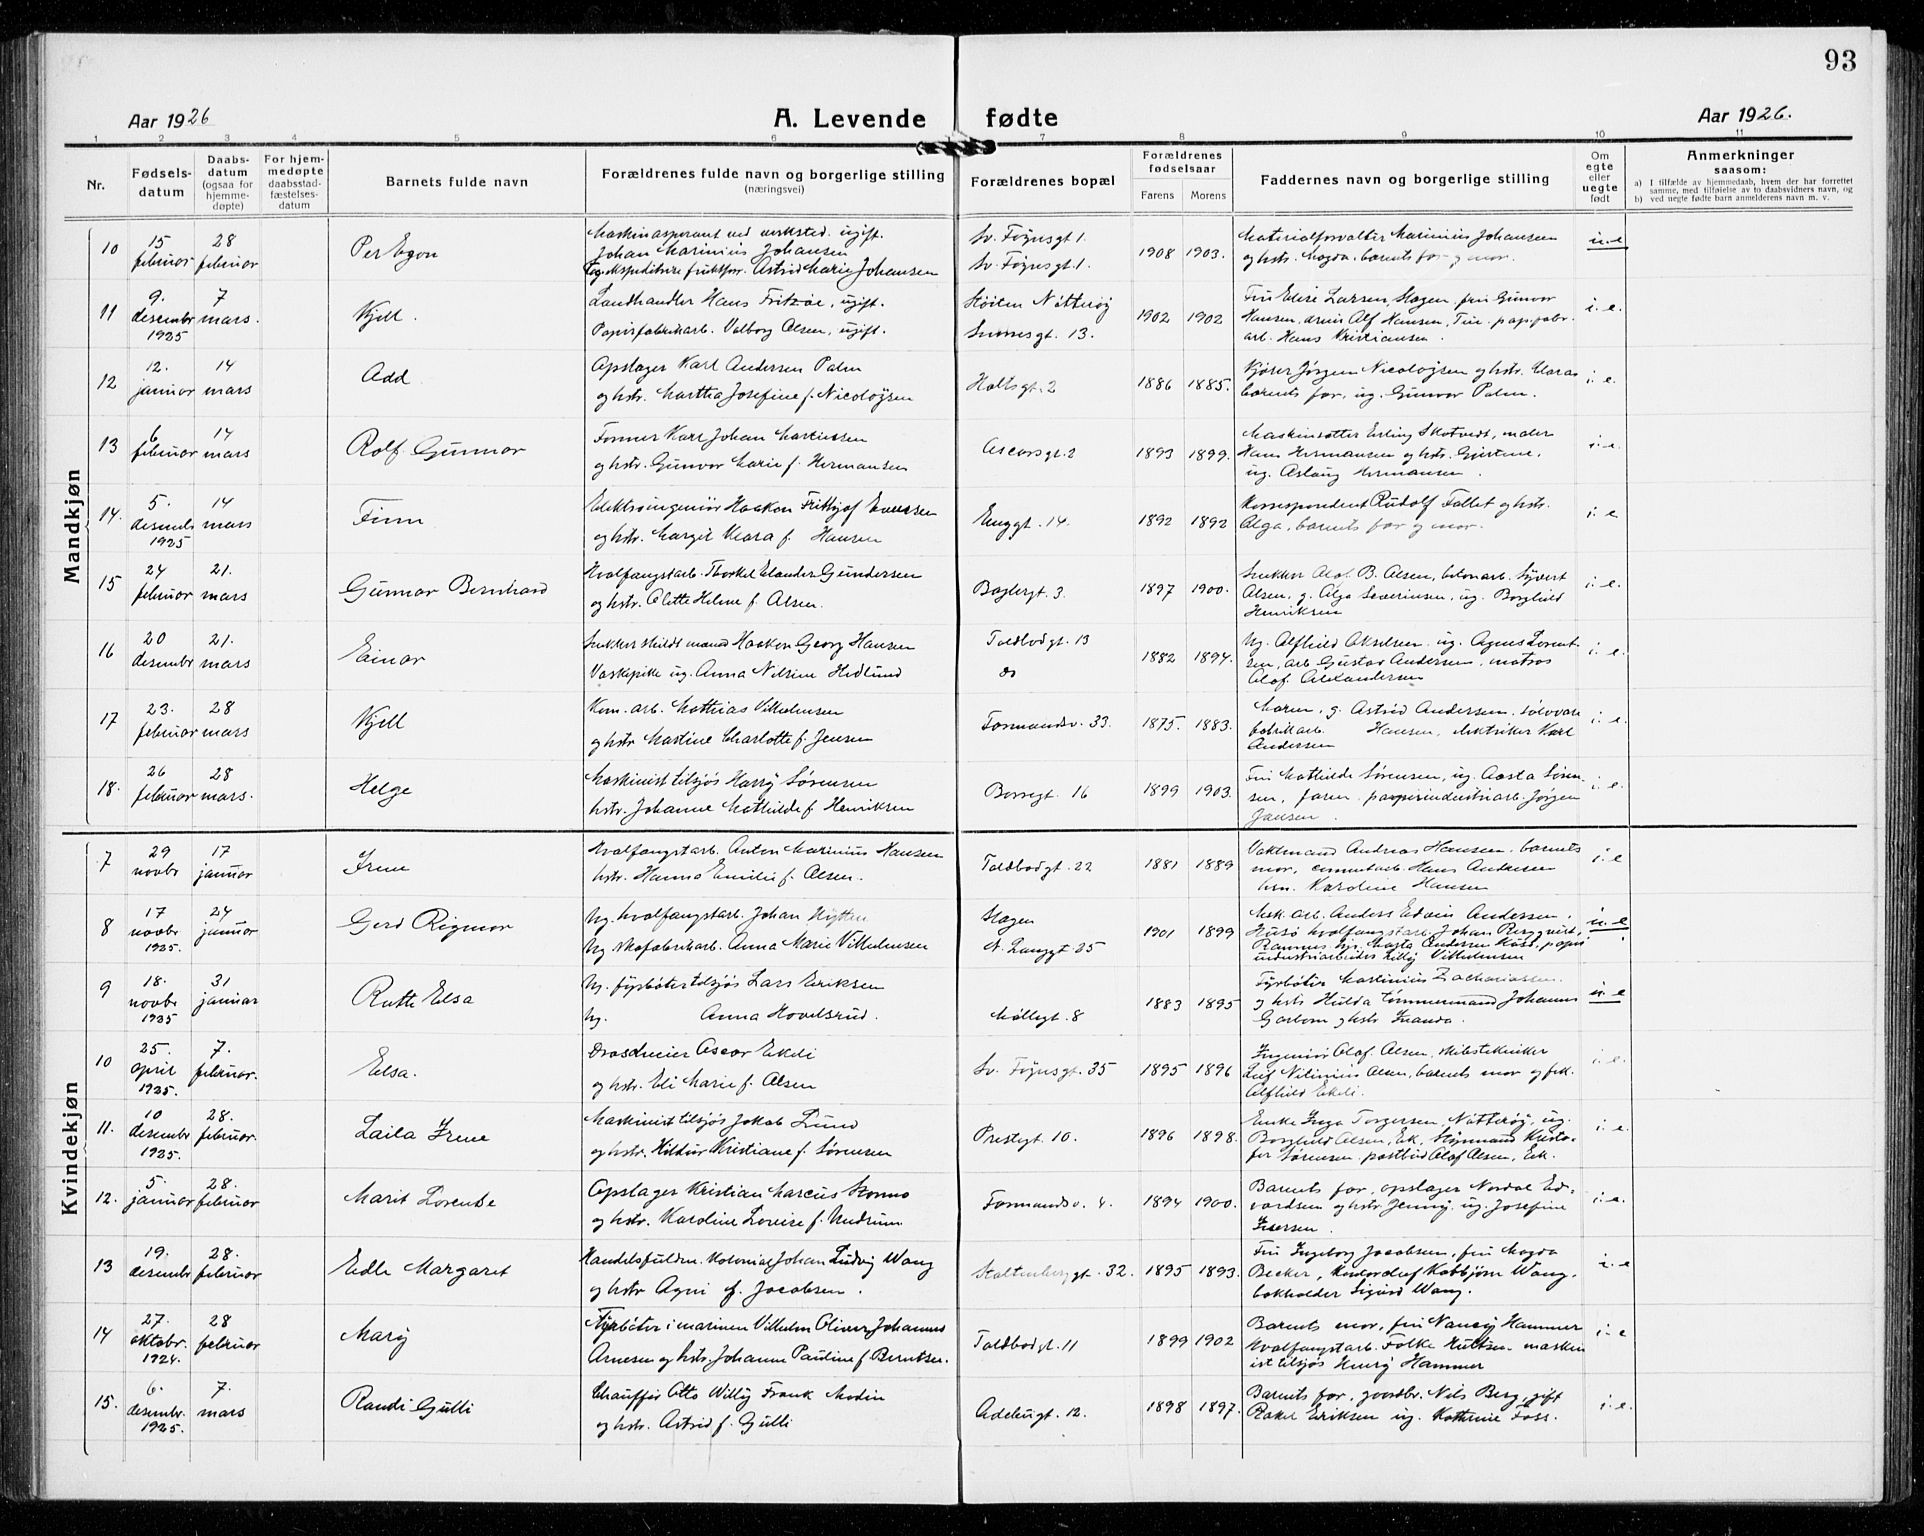 93
Aar 1926
A. Levende fødte
Aar 1926.
1 2 3 4 5 6 7 8 9 10 11
Nr.
Fødsels-
datum
Daabs-
datum
(ogsaa for
hjemme-
døpte)
For hjem-
medøpte
daabsstad-
fæstelses-
datum
Barnets fulde navn
Forældrenes fulde navn og borgerlige stilling
(næringsvei)
Forældrenes bopæl
Forældrenes
fødselsaar
Farens Morens
Faddernes navn og borgerlige stilling
Om
egte
eller
uegte
født
Anmerkninger
saasom:
a) I tilfælde av hjemmedaab, hvem der har forrettet
samme, med tilføielse av to daabsvidners navn, og
b) ved uegte fødte barn anmelderens navn m. v.
Mandkjøn
10
15
februar
28
februar
Per Egon
Maskinaspirant ved verksted. ugift.
Johan Marinius Johansen
Astrid Marie Johansen
Sv. Foynsgt 1.
Sv. Foynsgt. 1.
1908 1903.
Materialforvalter Marinius Johansen
og hstr. Magda, barnets far og mor.
u.e
11
9.
desembr
1925
7
mars.
Kjell.
Landhandler Hans Fritzøe, ugift.
Papirfabrikarb. Valborg Olsen, ugift.
Nøtterøy
Snorresgt. 13.
1902 1902
Fru Elise Larsen, Slagen, fru Gunvor
Hansen, Alf Hansen, pap.fabr.
arb. Hans Kristiansen.
i. e.
12
12.
januar
14
mars
Odd
Opslager Karl Andersen Palm
og hstr. Martha Josefine f. Nicolaysen
Holtsgt. 2
1886 1885.
Kjører Jørgen Nicolaysen og hstr. Clara
barnets far, ug. Gunvor Palm.
i. e.
13
6
februar
14
mars
Rolf Gunnar
Former Karl Johan Martinsen
og hstr. Gunvor Marie f. Hermansen
Oscarsgt. 2
1893 1899.
Maskinsetter Erling Skotvedt, maler
Hans Hermansen og hstr. Gjertine,
ug. Aslaug Hermansen.
i. e.
14.
5.
desemb
1925
14
mars
Finn
Elektroingeniør Haakon Frithjof Evensen
og hstr. Margit Klara f. Hansen
Enggt. 14.
1892 1892
Korrespondent Rudolf Fallet og hstr.
Olga, barnets far og mor.
i. e
15
24
februar
21.
mars
Gunnar Bernhard
Hvalfangstarb. Thorkel Elander Gundersen
og hstr. Olette Helene f. Olsen.
Baglergt. 3.
1897 1900.
Snekker Olaf B. Olsen, betonarb. Syvert
Olsen, g. Olga Severinsen, ug. Borghild
Henriksen
i. e.
16
20
desembr
21.
mars
Einar
Haakon Georg Hansen
Vaskepike ug. Anna Nilsine Hedlund
Toldbodgt. 13
do
1882 1894.
Ug. Alfhild Akselsen, ug. Agnes Lorent-
sen, arb Gustav Andersen, matros
Olaf Alexandersen
i. e.
17
23.
februar
28
mars
Kjell
Kom. arb. Mathias Vilhelmsen
og hstr Mastine Charlotte f. Jensen
Formandsv. 33.
1875. 1883.
Moren, g. Astrid Andersen, sølvvare
fabrikarb. Hansen, elektriker Karl
Andersen
i. e.
18.
26
februar
28
mars.
Helge
Maskinist tilsjøs Harry Sørensen
hstr. Johanne Mathilde f. Henriksen
Borregt. 16
1899 1903.
Fru Mathilde Sørensen, ug. Aasta Søren-
sen, faren, papirindustriarb. Jørgen
Jansen.
i. e.
Kvindekjøn
7
29
novbr
17
januar
Irene
Hvalfangstarb. Anton Marinius Hansen
hstr. Hanna Emilie f. Olsen.
Toldbodgt. 22
1881 1889
Vaktmand Andreas Hansen, barnets
mor, cementarb. Hans Andresen
hsn. Karoline Hansen
i. e
8
17
novbr
1925.
24
januar
Gerd Rigmor
Ug. hvalfangstarb. Johan Hytten
Ug. skofabrikarb. Anna Marie Vilhelmsen
Slagen
N. Langgt. 25
1901 1899
Anders Edvin Andersen,
Husø hvalfangstarb. Johan Bergqvist,
Ramnes, Marta Andersen papir
industriarbeider Lilly Vilhelmsen
u. e
9
18.
novbr
1925
31
januar
Ruth Elsa
Ug. fyrbøter tilsjøs Lars Eriksen
Ug. Anna Hovelsrud.
Møllegt. 8
1883 1895
Fyrbøter Martinius Zachariassen
og hstr Hulda tømmermand Johannes
Garbom og hstr Inanda.
u. e
10
25.
april
1925.
7.
februar.
Elsa.
Oscar Ekeli
og hstr. Eli Marie f. Olsen
Sv. Foynsgt. 35
1895 1896
Ingeniør Olaf Olsen,
Leif Nilinius Olsen, barnets mor og frk.
Alfhild Ekeli.
i. e.
11.
10
desembr
1925.
28.
februar.
Laila Irene
Maskinist tilsjøs Jakob Lund
og hstr. Hildur Kristiane f. Sørensen
Prestegt. 10.
1896 1898.
Enke Inga Torgersen, Nøtterøy, ug.
Borghild Olsen, Ek, Styrmand Kristo-
fer Sørensen, postbud Olaf Olsen, Eek.
i. e.
12.
5.
januar
28.
februar
Marit Lovense
Opslager Kristian Marcus Stormo
og hstr. Karoline Lovise f. Undrum
Formandsv. 4.
1894 1900.
Barnets far, opslager Nordal Ed-
vardsen og hstr Jenny, ug. Josefine
Iversen.
i. e.
13
19.
desembr
28.
februar
Edle Margaret
Handelsfuldm. Kolonial Johan Ludvig Wang
og hstr Agni f. Jacobsen.
Stoltenberggt. 32.
1895 1893.
Fru Ingeborg Jacobsen, fru Magda
Becker, Kontorchef Kolbjørn Wang,
bokholder Sigurd Wang.
i. e
14
27.
oktobr.
1924.
28
februar
Mary
Fyrbøter i marinen Vilhelm Oliver Johannes
Arnesen og hstr. Johanne Pauline f Berntsen.
Toldbodgt. 11
1899 1902
Barnets mor, fru Nancy Hammer
Hvalfangstarb. Folke Hultsen, maskin
ist tilsjøs Henry Hammer
i. e
15.
6.
desembr.
1925.
7.
mars
Randi Gulli
Chauffør Otto Willy Frank Modin
og hstr. Astrid f. Gulli
Ødelugt. 12.
1898 1897.
Barnets far, gaardbr. Nils Berg, gift
Rakel Eriksen ug. Kathrine Foss.
i. e.